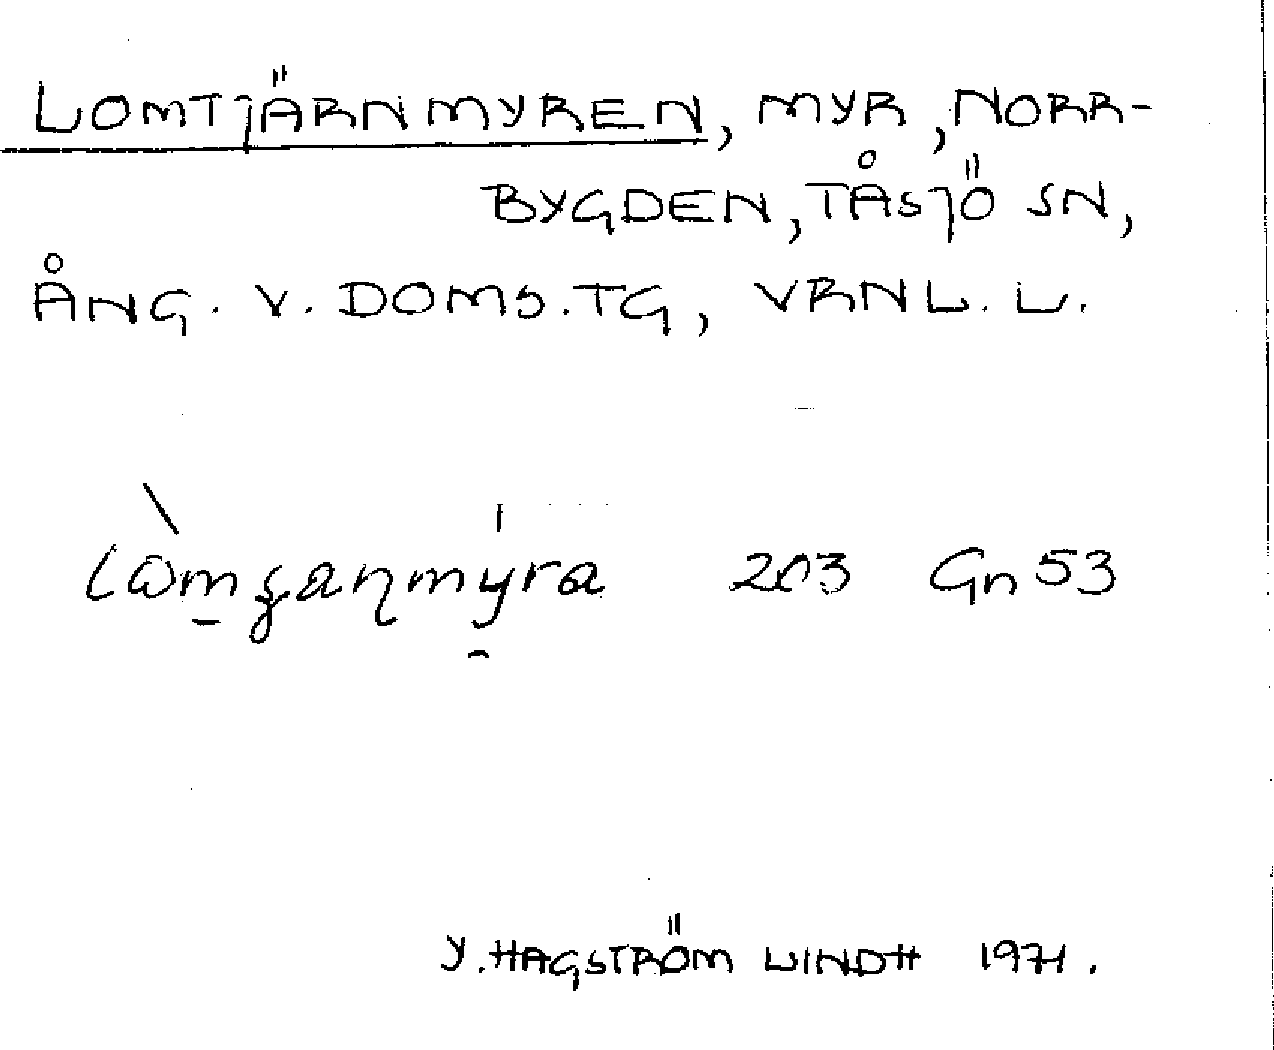 LOMTJÄRNMYREN, MYR, NORR-
BYGDEN, TÅSJÖ SN,
ÅNG. V. DOMS.TG, VRNL. L.
203 Gn 53
Y. HAGSTRÖM LINDH 1971.